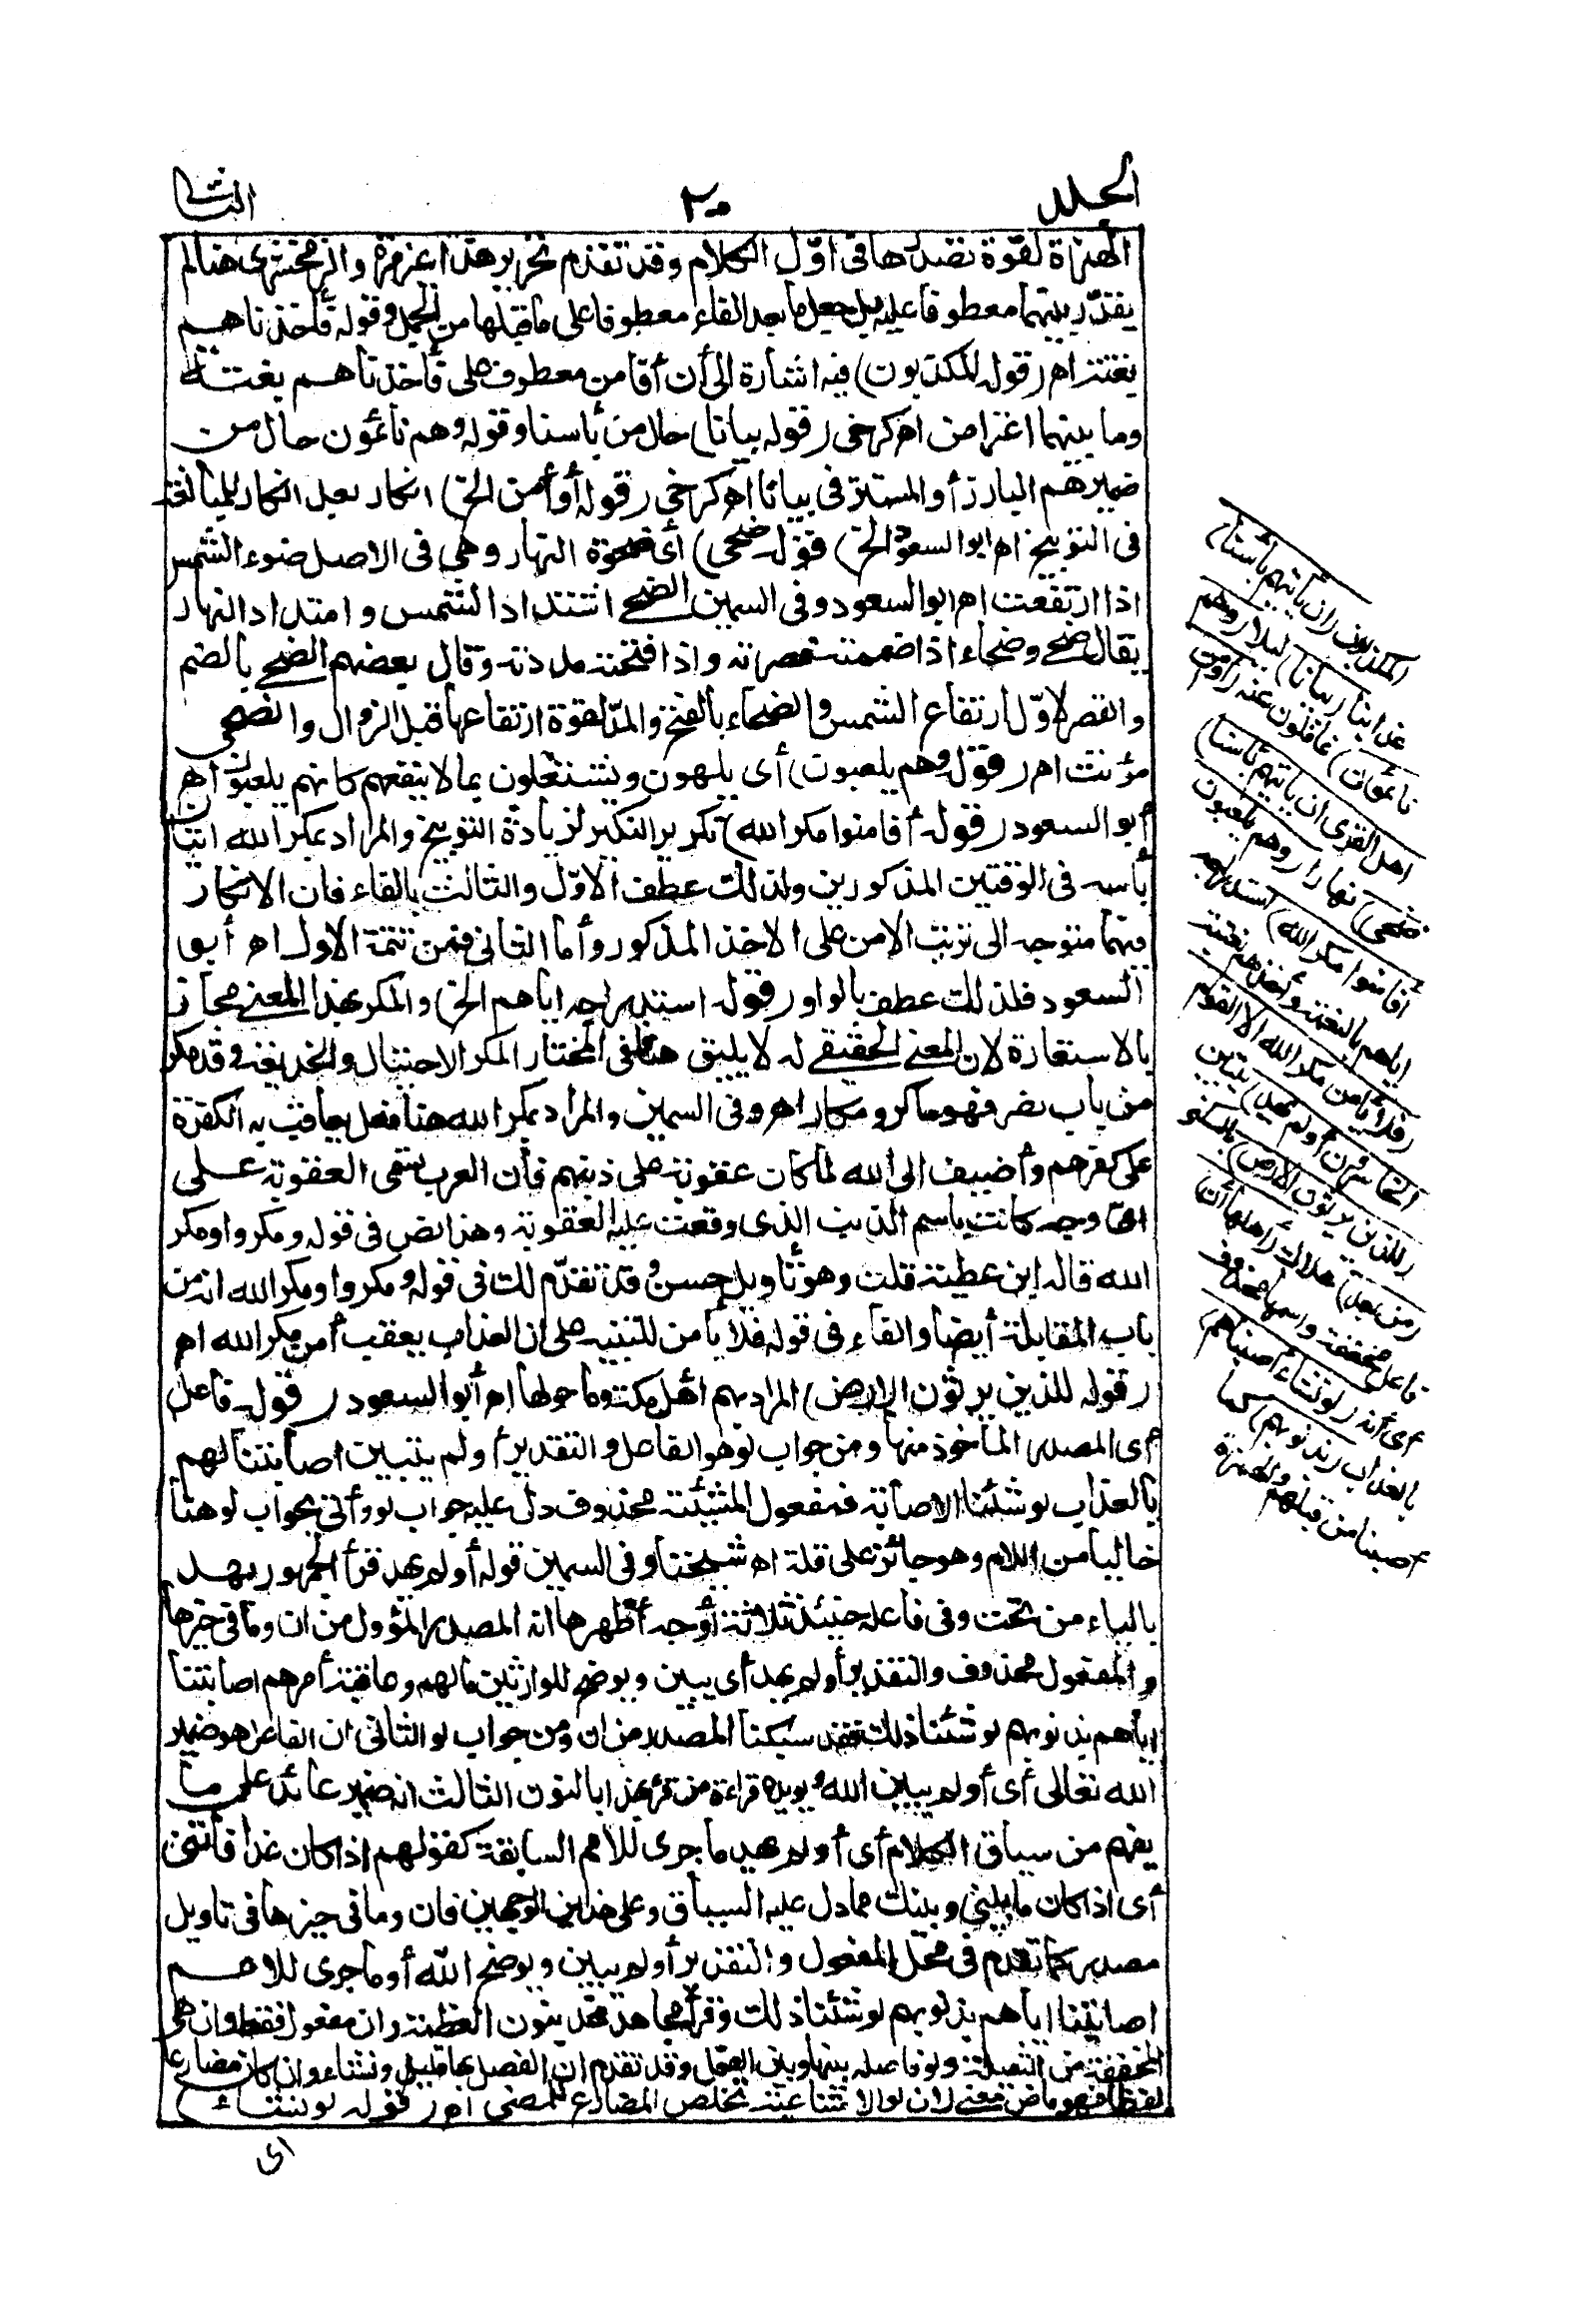 الجلد
٢٠
الثانى
الهمزة لقوة تصدرها فى أوّل الكلام وقد تقدم تحرير هذا غير مرة والزمخشرى هنا لم
يقدّر بينهما معطوفا عليه بل جعل ما بعد الفاء معطوفا على ما قبلها من الجمل وقوله فأخذناهم
بغتة اهـ (قوله المكذبون) فيه اشارة الى أن أفأمن معطوف على فأخذناهم بغتة
وما بينهما اعتراض اهـ كرخى (قوله بياتا) حال من بأسنا وقوله وهم نائمون حال من
ضميرهم البارز أو المستتر فى بياتا اهـ كرخى (قوله أو أمن الخ) انكار بعد انكار للمبالغة
فى التوبيخ اهـ ابو السعود (قوله ضحى) أى ضحوة النهار وهى فى الاصل ضوء الشمس
اذا ارتفعت اهـ ابو السعود وفى السمين الضحى اشتداد الشمس وامتداد النهار
يقال ضحى وضحاء اذا ضممته قصرته واذا فتحته مددته وقال بعضهم الضحى بالضم
والقصر لاوّل ارتفاع الشمس والضحاء بالفتح والمدّ لقوة ارتفاعها قبل الزوال والضحى
مؤنث اهـ (قوله وهم يلعبون) أى يلهون ويشتغلون بما لا ينفعهم كانهم يلعبون اهـ
أبو السعود (قوله أفأمنوا مكر الله) تكرير النكير لزيادة التوبيخ والمراد بمكر الله اتيان
بأسه فى الوقتين المذكورين ولذلك عطف الاوّل والثالث بالفاء فان الانكار
فيهما متوجه الى ترتب الامن على الاخذ المذكور وأما الثانى فمن تتمة الاول اهـ أبو
السعود فلذلك عطف بالواو (قوله استدراجه اياهم الخ) والمكر بهذا المعنى مجاز
بالاستعارة لان المعنى الحقيقى له لا يليق هنا فى المختار المكر الاحتيال والخديعة وقد مكر
من باب نصر فهو ماكر ومكار اهـ وفى السمين والمراد بمكر الله هنا فعل يعاقب به الكفرة
على كفرهم وأضيف الى الله لما كان عقوبة على ذنبهم فأن العرب تسمى العقوبة على
اىّ وجه كانت باسم الذنب الذى وقعت عليه العقوبة وهذا نص فى قوله ومكروا ومكر
الله قاله ابن عطية قلت وهو تأويل حسن وقد تقدّم لك فى قوله ومكروا ومكر الله انه من
باب المقابلة أيضا والفاء فى قوله فلا يأمن للتنبيه على ان العذاب يعقب أمن مكر الله اهـ
(قوله للذين يرثون الارض) المراد بهم اهل مكة وما حولها اهـ أبو السعود (قوله فاعل
أى المصدر المأخوذ منها ومن جواب لو هو الفاعل والتقدير أولم يتبين اصابتنا لهم
بالعذاب لو شئنا الاصابة فمفعول المشيئة محذوف دل عليه جواب لو وأتى بجواب لو هنا
خاليا من اللام وهو جائز على قلة اهـ شيخنا وفى السمين قوله أولم يهد قرأ الجمهور يهد
بالياء من تحت وفى فاعله حينئذ ثلاثة أوجه أظهرها انه المصدر المؤول من ان وما فى حيزها
والمفعول محذوف والتقدير أولم يهد أى يبين ويوضح للوارثين مالهم وعاقبة أمرهم اصابتنا
اياهم بذنوبهم لو شئنا ذلك فقد سبكنا المصدر من ان ومن جواب لو الثانى ان الفاعل هو ضمير
الله تعالى أى أولم يبين الله ويؤيده قراءة من قرأ نهد بالنون الثالث انه ضمير عائد على ما
يفهم من سياق الكلام أى أولم يهد ما جرى للامم السابقة كقولهم اذا كان غدا فأتنى
أى اذا كان ما بينى وبينك مما دل عليه السياق وعلى هذين الوجهين فان وما فى حيزها فى تاويل
مصدر كما تقدم فى محل المفعول والتقدير أولم يبين ويوضح الله أو ما جرى للامم
اصابتنا اياهم بذنوبهم لو شئنا ذلك وقرأ مجاهد نهد بنون العظمة وان مفعول فقط وان هى
المخففة من الثقيلة ولو فاصلة بينها وبين الفعل وقد تقدم ان الفصل بها قليل ونشاء وان كان مضارعا
لفظا فهو ماض معنى لان لو الامتناعية تخلص المضارع للمضى اهـ (قوله لو نشاء)
اى
المكذبون (ان يأتيهم بأسنا)
عذابنا (بياتا) ليلا (وهم
نائمون) غافلون عنه (أو أمن
اهل القرى ان يأتيهم بأسنا
ضحى) نهارا (وهم يلعبون
أفأمنوا مكر الله) استدراجه
اياهم بالنعمة وأخذهم بغتة
(فلا يأمن مكر الله الا القوم
الخاسرون أولم يهد) يتبين
(للذين يرثون الارض) بالسكنى
(من بعد) هلاك (أهلها أن)
فاعل مخففة واسمها محذوف
أى أنه (لو نشاء أصبناهم)
بالعذاب (بذنوبهم) كما
أصبنا من قبلهم والهمزة